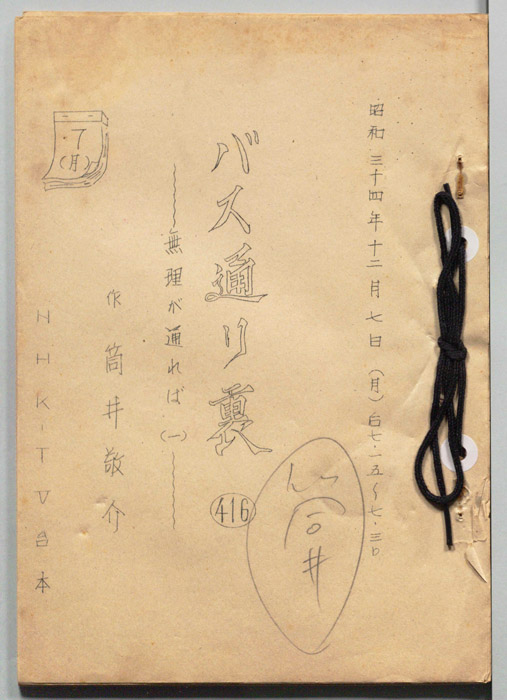 昭和三十四年十二月七日(月)后七・一五〜七・三〇
バス通り裏 416
無理が通れば(一)
作 筒井敬介
NHK-TV台本
7
(月)
筒井